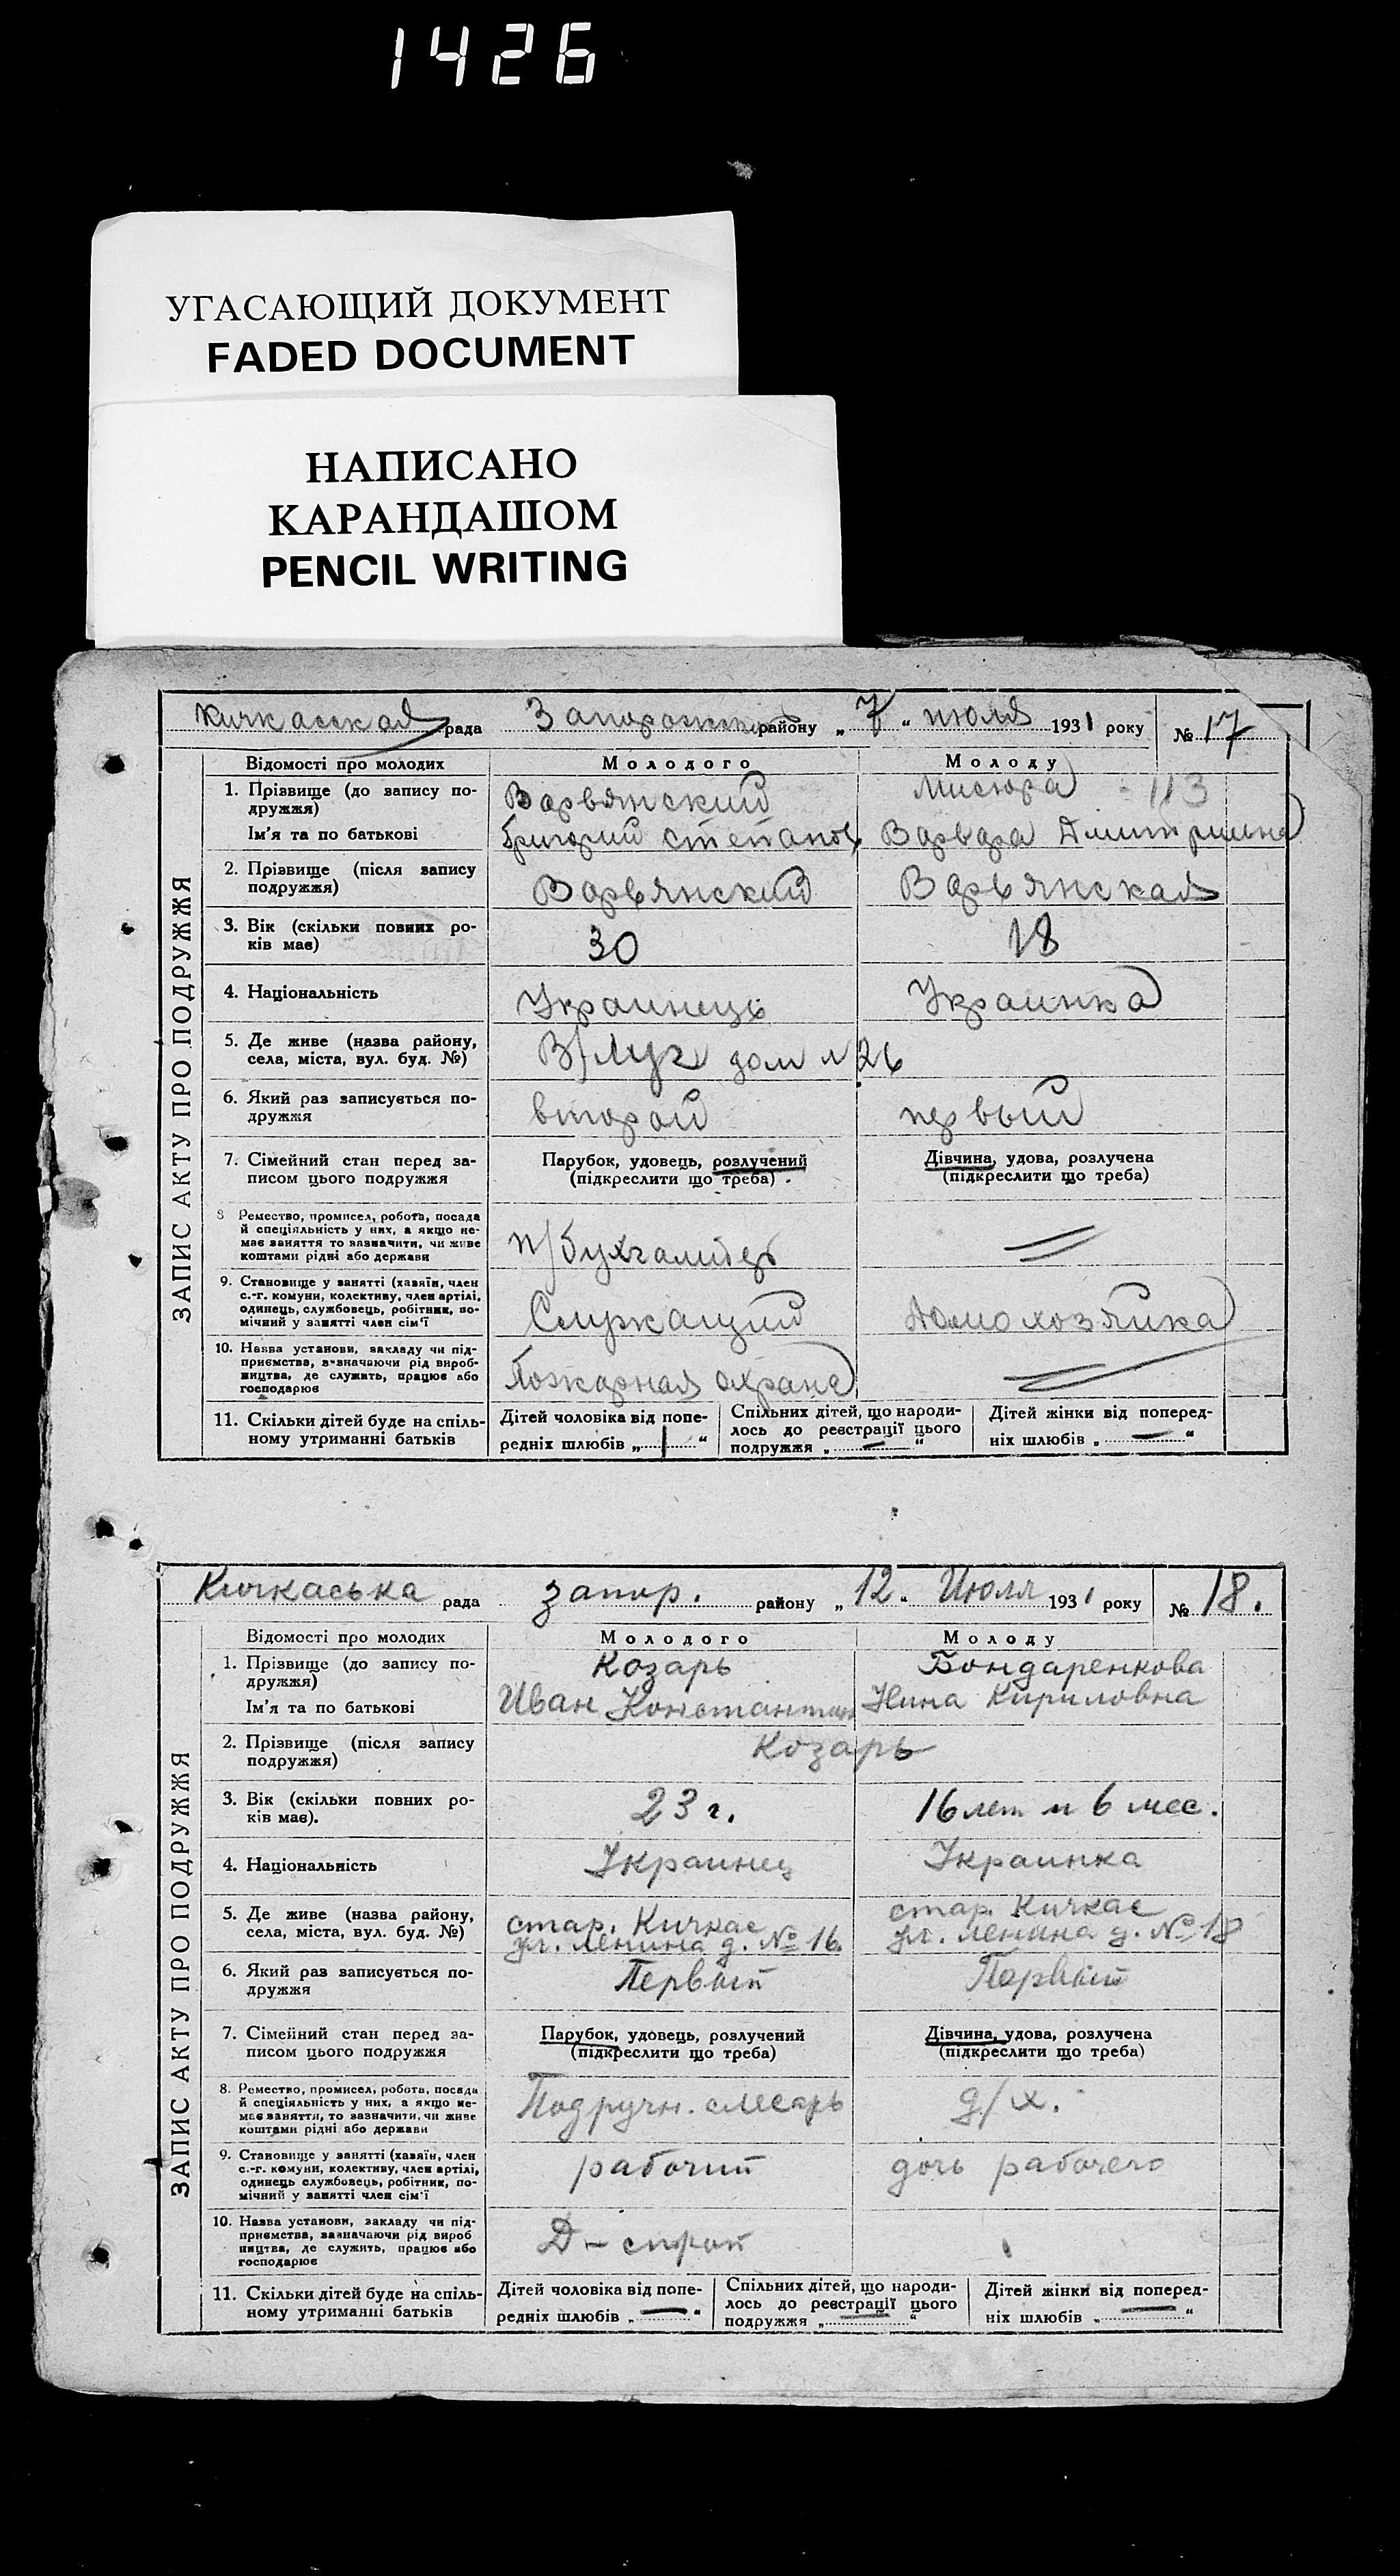 1426
УГАСАЮЩИЙ ДОКУМЕНТ
FADED DOCUMENT
НАПИСАНО
КАРАНДАШОМ
PENCIL WRITING
Кичкасская рада Запорожский району „7“ июля 1931 року № 17
ЗАПИС АКТУ ПРО ПОДРУЖЖЯ
Відомості про молодих Молодого Молоду
1. Прізвище (до запису по- Варвянский Мисюра 113
дружжя)
Ім'я та по батькові Григорий Степанов Варвара Дмитриевна
2. Прізвище (після запису
подружжя) Варвянский Варвянская
3. Вік (скільки повних ро-
ків має) 30 18
4. Національність Украинець Украинка
5. Де живе (назва району,
села, міста, вул. буд. №) В/Луг дом № 26
6. Який раз записується по-
дружжя второй первый
7. Сімейний стан перед за- Парубок, удовець, розлучений Дівчина, удова, розлучена
писом цього подружжя (підкреслити що треба) (підкреслити що треба)
8 Ремество, промисел, робота, посада
й спеціяльність у них, а якщо не-
має заняття то зазначити, чи живе
коштами рідні або держави п/бухгалтер
9. Становище у занятті (хазяїн, член
с.-г. комуни, колективу, член артілі,
одинець, службовець, робітник, по-
мічний у занятті член сім'ї Служащий Домохозяйка
10. Назва установи, закладу чи під-
приємства, зазначаючи рід вироб-
ництва, де служить, працює або
господарює Пожарная охрана
11. Скільки дітей буде на спіль- Дітей чоловіка від попе- Спільних дітей, що народи- Дітей жінки від поперед-
ному утриманні батьків редніх шлюбів „ 1 “ лось до реєстрації цього ніх шлюбів „ — “
подружжя „ — “
Кичкаська рада запор. району „12“ Июля 1931 року № 18.
ЗАПИС АКТУ ПРО ПОДРУЖЖЯ
Відомості про молодих Молодого Молоду
1. Прізвище (до запису по- Козарь Бондаренкова
дружжя)
Ім'я та по батькові Иван Константин Нина Кириловна
2. Прізвище (після запису Козарь
подружжя)
3. Вік (скільки повних ро- 23 г. 16 лет и 6 мес.
ків має).
4. Національність Украинец Украинка
5. Де живе (назва району, стар. Кичкас стар. Кичкас
села, міста, вул. буд. №) ул. Ленина д. № 16. ул. Ленина д. № 18
6. Який раз записується по- Первый Первый
дружжя
7. Сімейний стан перед за- Парубок, удовець, розлучений Дівчина, удова, розлучена
писом цього подружжя (підкреслити що треба) (підкреслити що треба)
8. Ремество, промисел, робота, посада
й спеціяльність у них, а якщо не-
має заняття, то зазначити, чи живе
коштами рідні або держави Подручн. слесарь д/х.
9. Становище у занятті (хазяїн, член
с.-г. комуни, колективу, член артілі,
одинець службовець, робітник, по-
мічний у занятті член сім'ї рабочий дочь рабочего
10. Назва установи, закладу чи під-
приємства, зазначаючи рід вироб
ництва, де служить, працює або
господарює Д-строй
11. Скільки дітей буде на спіль- Дітей чоловіка від попе- Спільних дітей, що народи- Дітей жінки від поперед-
ному утриманні батьків редніх шлюбів „ — “ лось до реєстрації цього ніх шлюбів „ — “
подружжя „ — “